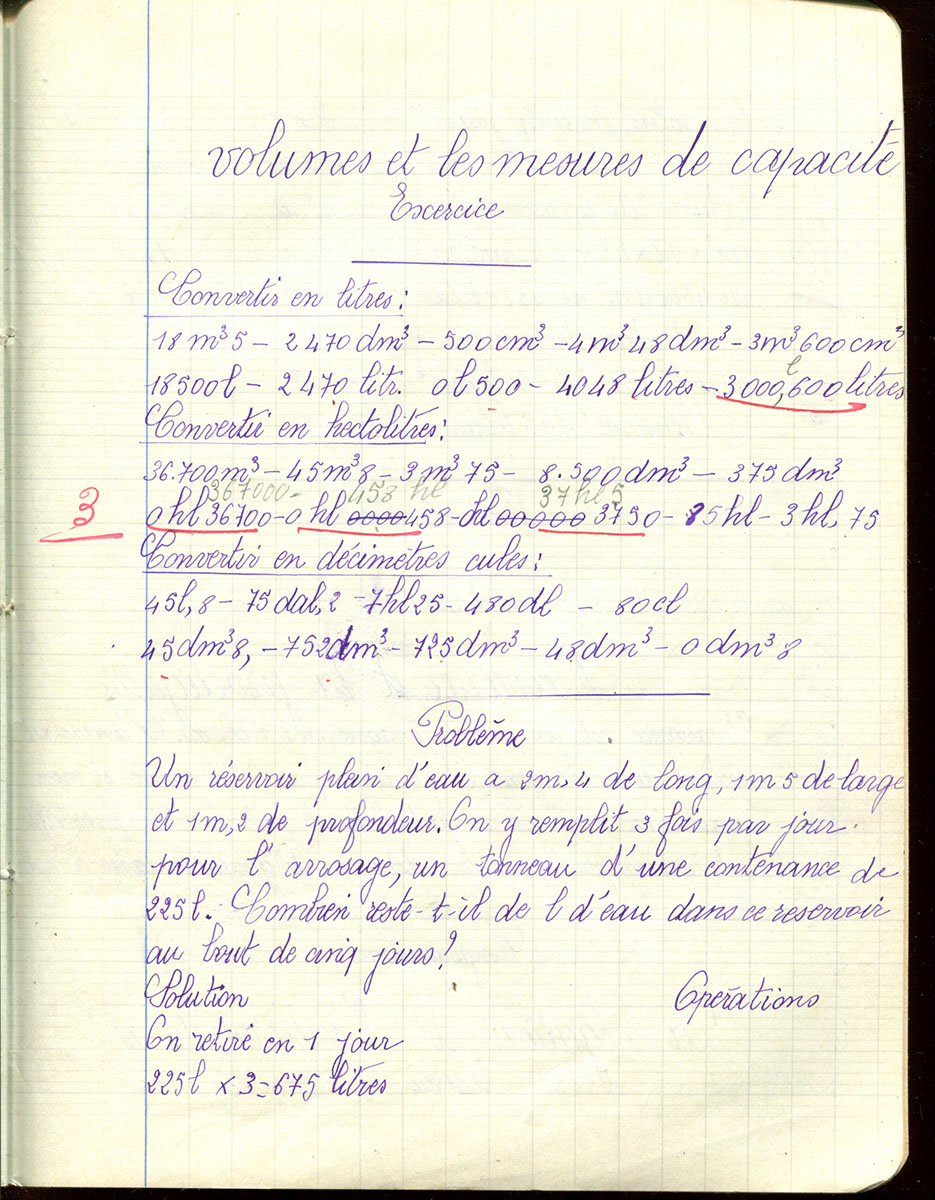 volumes et les mesures de capacité
Excercice
Convertir en litres :
18 m³ 5 – 2 470 dm³ – 500 cm³ – 4 m³ 48 dm³ – 3 m³ 600 cm³
l
18500 l – 2 470 litr. 0 l 500 – 4048 litres – 3 000,600 litres
Convertir en hectolitres :
36.700 m³ – 45 m³ 8 – 3 m³ 75 – 8.500 dm³ – 375 dm³
367000 – 458 hl 37 hl 5
3 0 hl 36700 – 0 hl 0000458 – hl 00000 3750 – 85 hl – 3 hl, 75
Convertir en décimetres cules :
45 l, 8 – 75 dal, 2 – 7 hl 25 – 480 dl – 80 cl
45 dm³ 8, – 752 dm³ – 725 dm³ – 48 dm³ – 0 dm³ 8
Problème
Un réservoir plein d'eau a 2 m, 4 de long, 1 m 5 de large
et 1 m, 2 de profondeur. On y remplit 3 fois par jour
pour l'arrosage, un tonneau d'une contenance de
225 l. Combien reste-t-il de l d'eau dans ce reservoir
au bout de cinq jours ?
Solution Opérations
On retire en 1 jour
225 l × 3 = 675 litres